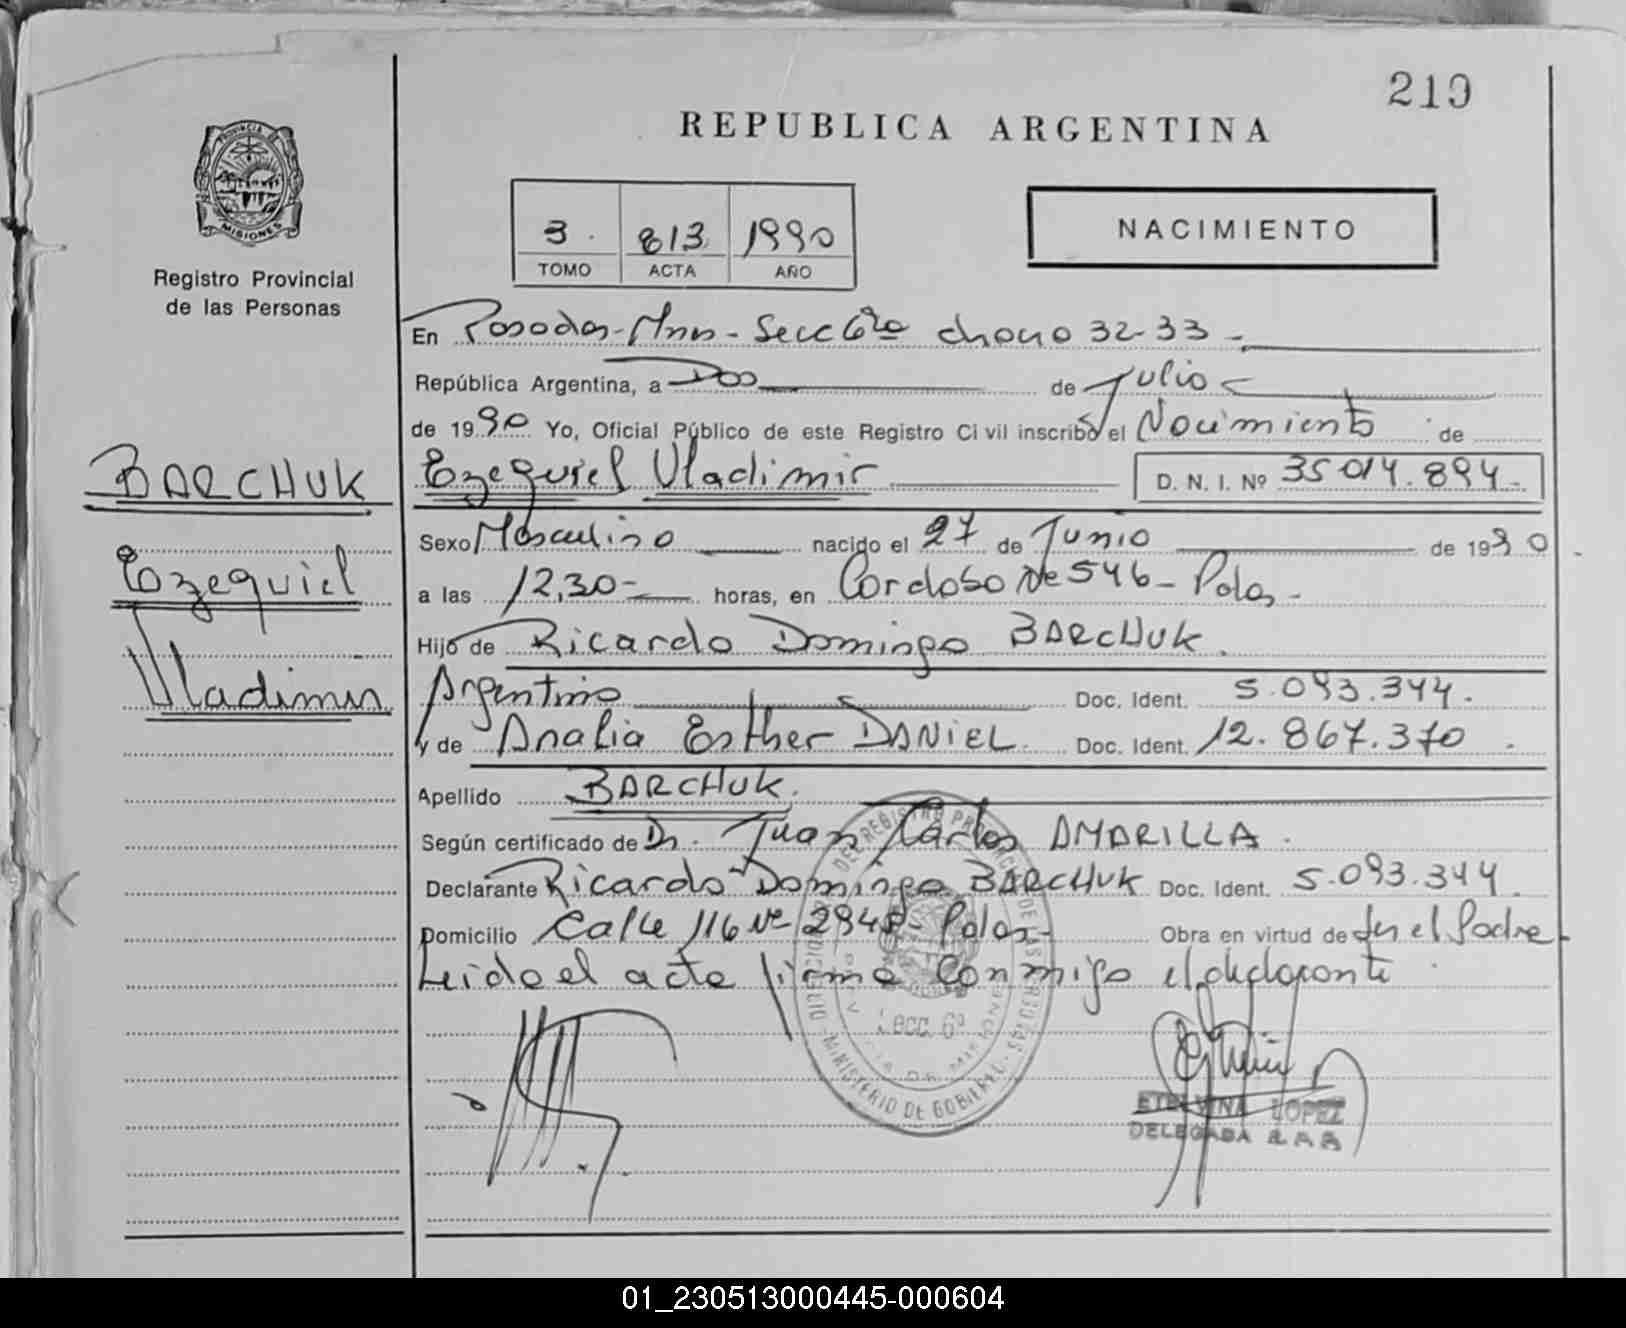 219
REPUBLICA ARGENTINA
PROVINCIA DE
MISIONES
Registro Provincial
de las Personas
3. 813 1990
TOMO ACTA AÑO
NACIMIENTO
En Posadas-Mnes-Secc 6ta chacra 32-33-
República Argentina, a Dos de Julio
de 1990 Yo, Oficial Público de este Registro Civil inscribo el Nacimiento de
Ezequiel Vladimir D. N. I. Nº 35 014.894.
BARCHUK
Ezequiel
Vladimir
Sexo Masculino nacido el 27 de Junio de 1990
a las 12,30- horas, en Cordoso Nº 546- Pdas-
Hijo de Ricardo Domingo BARCHUK.
Argentino Doc. Ident. 5.093.344.
y de Analia Esther DANIEL. Doc. Ident. 12.867.370.
Apellido BARCHUK.
Según certificado de Dr. Juan Carlos AMARILLA.
Declarante Ricardo Domingo BARCHUK Doc. Ident. 5.093.344.
Domicilio Calle 116 Nº Pdas- Obra en virtud de ser el Padre
Leido el acta firma conmigo el declarante
Secc. 6ª
MINISTERIO DE GOBIERNO
ETELVINA LOPEZ
DELEGADA
01_230513000445-000604